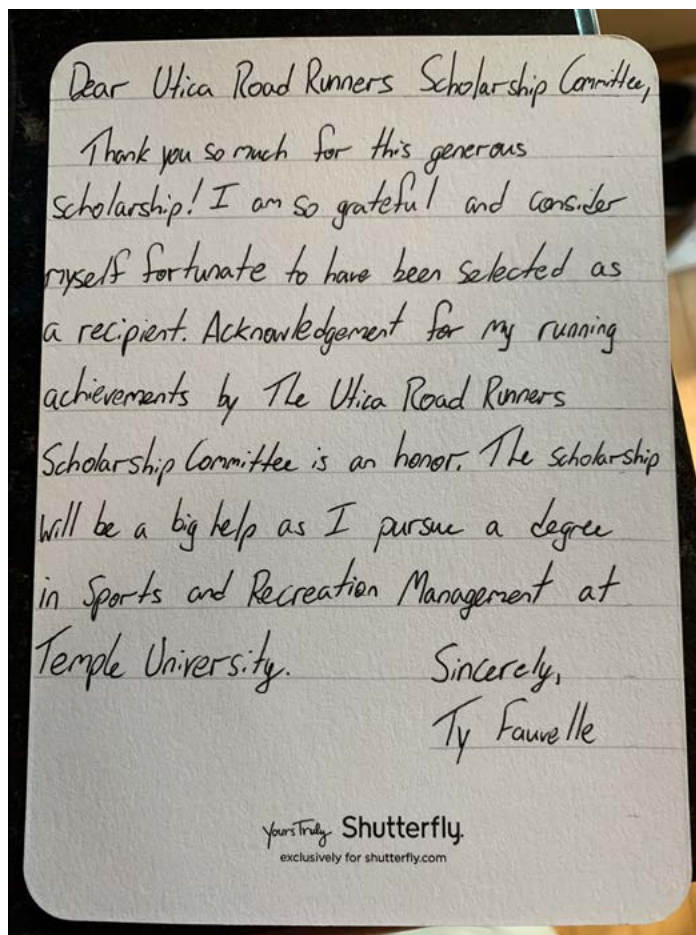 Dear Utica Road Runners Scholarship Committee,
Thank you so much for this generous
scholarship! I am so grateful and consider
myself fortunate to have been selected as
a recipient. Acknowledgement for my running
achievements by The Utica Road Runners
Scholarship Committee is an honor. The scholarship
will be a big help as I pursue a degree
in Sports and Recreation Management at
Temple University.
Sincerely,
Ty Fauvelle
Yours Truly Shutterfly.
exclusively for shutterfly.com